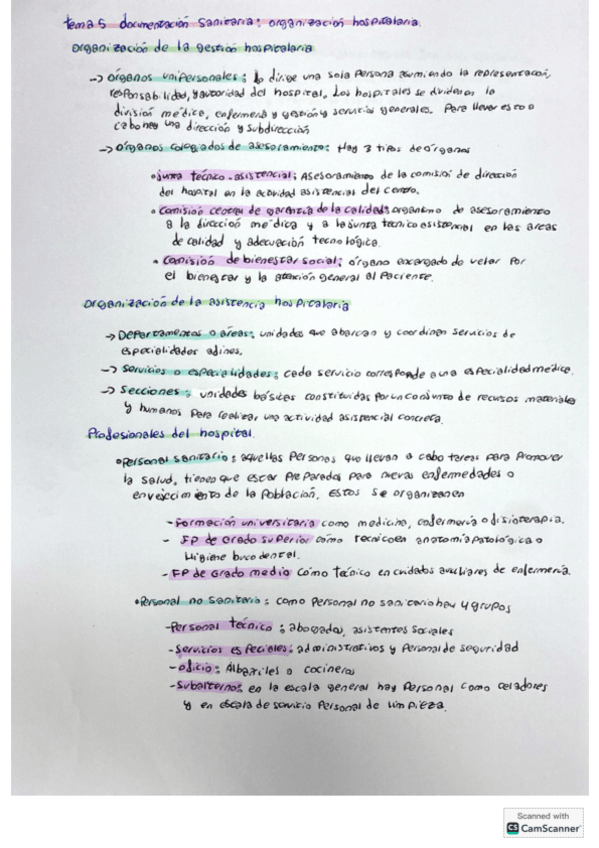 tema 5 documentación Sanitaria: organización hospitalaria.
Organización de la gestión hospitalaria
-> Órganos unipersonales: lo dirige una sola persona asumiendo la representación,
responsabilidad, y autoridad del hospital. Los hospitales se dividen en la
división médica, enfermería y gestión y servicios generales. Para llevar esto a
cabo hay una dirección y subdirección
-> Órganos colegados de asesoramiento: Hay 3 tipos de órganos
• Junta técnico-asistencial: Asesoramiento de la comisión de dirección
del hospital en la actividad asistencial del centro.
• Comisión central de garantía de la calidad: organismo de asesoramiento
a la dirección médica y a la junta técnico asistencial en las areas
de calidad y adecuación tecnológica.
• Comisión de bienestar social: órgano encargado de velar por
el bienestar y la atención general al paciente.
Organización de la asistencia hospitalaria
-> Departamentos o áreas: unidades que abarcan y coordinan servicios de
especialidades afines.
-> Servicios o especialidades: cada servicio corresponde a una especialidad médica.
-> Secciones: unidades básicas constituidas por un conjunto de recursos materiales
y humanos para realizar una actividad asistencial concreta.
Profesionales del hospital.
• Personal sanitario: aquellas personas que llevan a cabo tareas para promover
la salud, tienen que estar preparados para nuevas enfermedades o
envejecimiento de la población, estos se organizan en
- Formación universitaria como medicina, enfermería o fisioterapia.
- FP de Grado superior como tecnico en anatomía patológica o
Higiene bucodental.
- FP de Grado medio como técnico en cuidados auxiliares de enfermería.
• Personal no Sanitario: como personal no sanitario hay 4 grupos
- Personal técnico: abogados, asistentes sociales
- Servicios especiales: administrativos y personal de seguridad
- oficio: Albañiles o cocineros
- Subalterno: en la escala general hay personal como celadores
y en escala de servicio personal de limpieza.
Scanned with
CS CamScanner